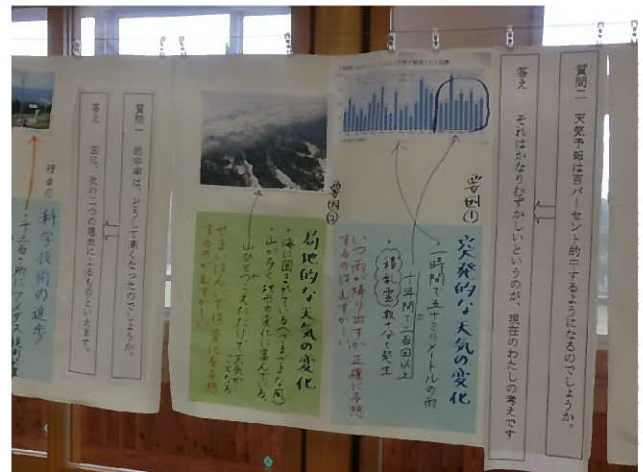 質問二 天気予報は百パーセント的中するようになるのでしょうか。
答え それはかなりむずかしいというのが、現在のわたしの考えです
要因①
突発的な天気の変化
・一時間で五十ミリメートルの雨
十年間で二百回以上
・積乱雲 数十分で発生
いつ雨が降り出すか正確に予想
するのはむずかしい。
要因②
局地的な天気の変化
・海に囲まれている
・山が多く地形が変化に富んでいる。
山ひとつこえただけで天気が
ことなる
せまいはんいでは、変化を予想
するのがむずかしい。
質問一 的中率は、どうして高くなったのでしょうか。
答え 主に、次の二つの理由によるものといえます。
理由①
科学技術の進歩